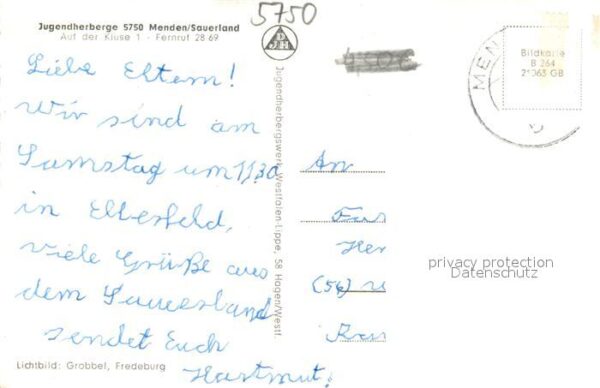 5750
Jugendherberge 5750 Menden/Sauerland
Auf der Kluse 1 - Fernruf 28 69
Liebe Eltern!
Wir sind am
Samstag um 11.30
in Elberfeld,
viele Grüße aus
dem Sauerland
sendet Euch
Hartmut!
Lichtbild: Grobbel, Fredeburg
Jugendherbergswerk Westfalen-Lippe, 58 Hagen/Westf.
MEN
Bildkarte
B 264
2*063 GB
An
(56)
privacy protection
Datenschutz